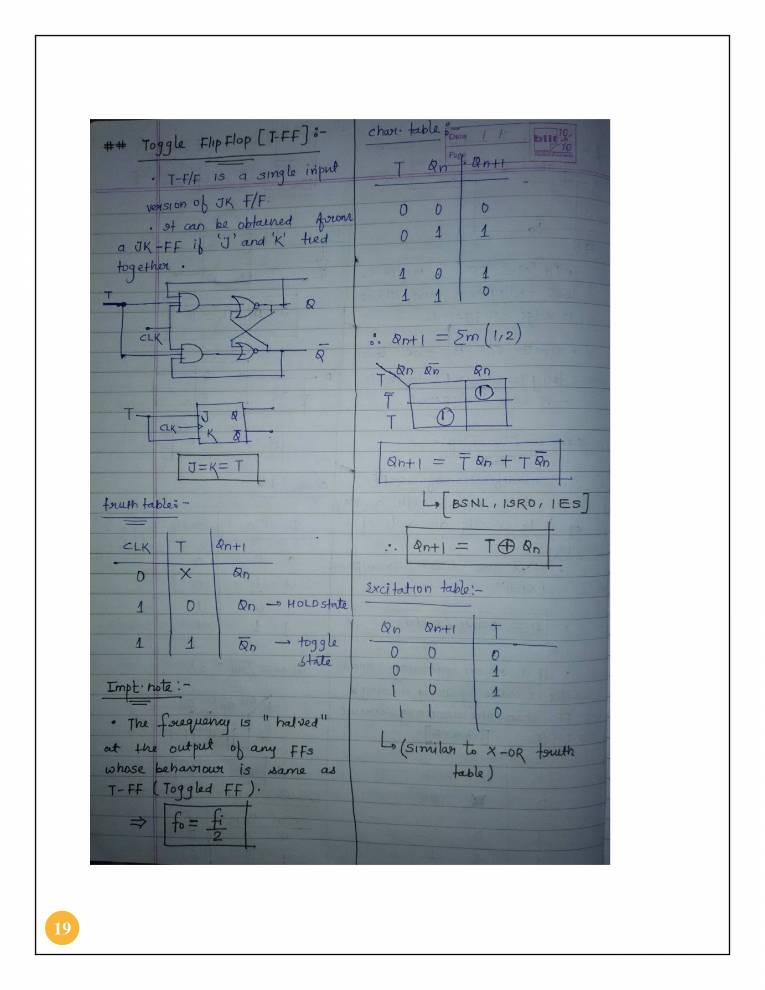 ## Toggle FlipFlop [T-FF] :-
• T-F/F is a single input
version of JK F/F.
• It can be obtained from
a JK-FF if 'J' and 'K' tied
together.
T
CLK
Q
Q̅
T
CLK
J Q
K Q̅
J=K=T
truth table:-
CLK T Qn+1
0 X Qn
1 0 Qn → HOLD state
1 1 Q̅n → toggle
state
Impt. note:-
• The frequency is "halved"
at the output of any FFs
whose behaviour is same as
T-FF (Toggled FF).
⇒ fo = fi/2
char. table:-
Date / /
T Qn Qn+1
0 0 0
0 1 1
1 0 1
1 1 0
∴ Qn+1 = Σm(1,2)
T Qn Q̅n Qn
T̅ 1
T 1
Qn+1 = T̅ Qn + T Q̅n
↳ [BSNL, ISRO, IES]
∴ Qn+1 = T ⊕ Qn
Excitation table:-
Qn Qn+1 T
0 0 0
0 1 1
1 0 1
1 1 0
↳ (similar to X-OR truth
table)
19